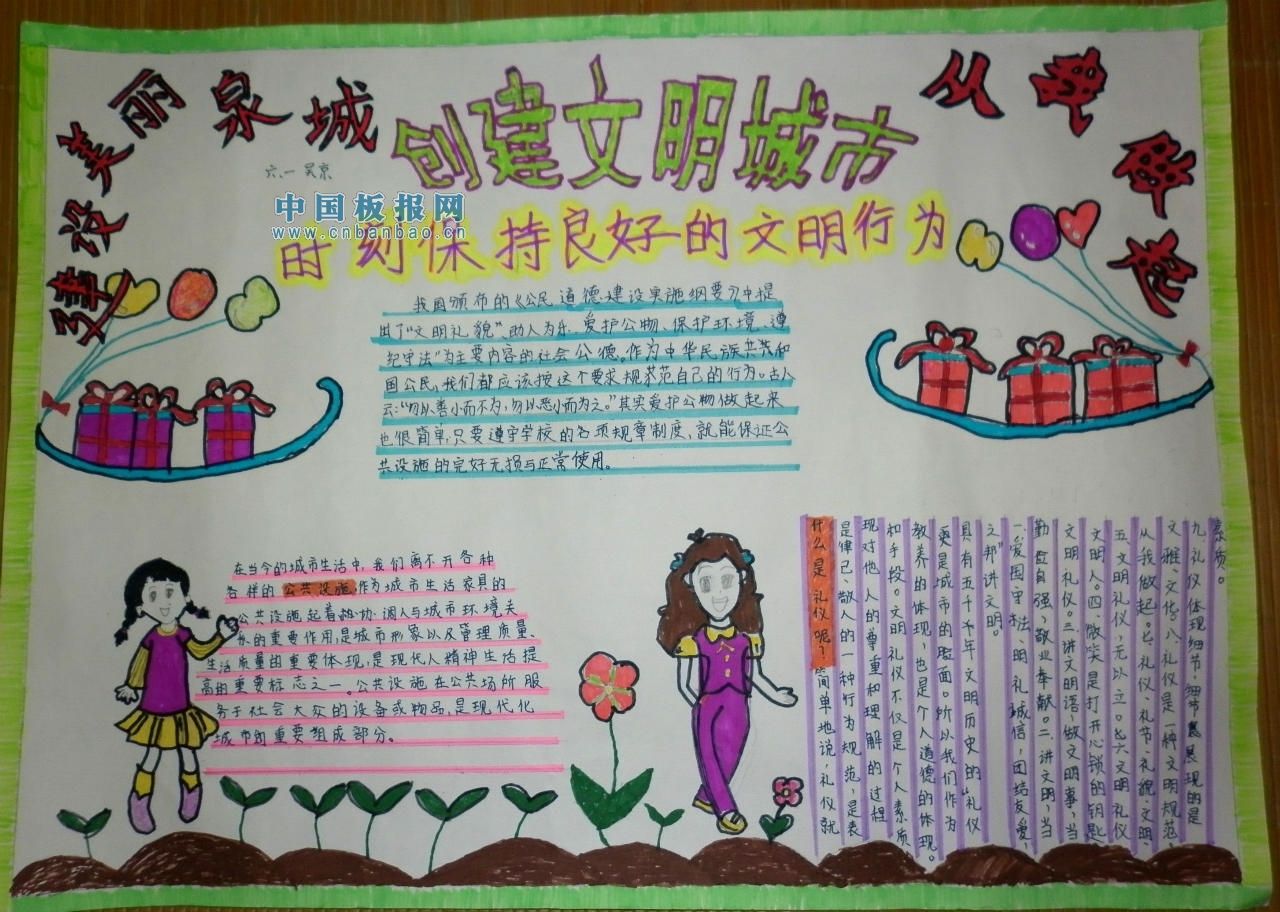 建设美丽泉城
创建文明城市
从我做起
六、一 吴京
中国板报网
www.cnbanbao.cn
时刻保持良好的文明行为
我国颁布的《公民道德建设实施纲要》中提
出了“文明礼貌”、助人为乐、爱护公物、保护环境、遵
纪守法”为主要内容的社会公德。作为中华民族共和
国公民,我们都应该按这个要求规范自己的行为。古人
云:“勿以善小而不为,勿以恶小而为之。”其实爱护公物做起来
也很简单,只要遵守学校的各项规章制度,就能保证公
共设施的完好无损与正常使用。
在当今的城市生活中,我们离不开各种
各样的公共设施,作为城市生活家具的
公共设施起着协调人与城市环境关
系的重要作用,是城市形象以及管理质量、
生活质量的重要体现,是现代人精神生活提
高的重要标志之一。公共设施在公共场所服
务于社会大众的设备或物品,是现代化
城市的重要组成部分。
什么是礼仪呢?简单地说,礼仪就
是律己、敬人的一种行为规范,是表
现对他人的尊重和理解的过程
和手段。文明礼仪不仅是个人素质
教养的体现,也是个人道德的体现。
更是城市的脸面。所以我们作为
具有五千年文明历史的“礼仪
之邦”讲文明。
一、爱国守法,明礼诚信,团结友爱,
勤俭自强,敬业奉献。二、讲文明,当
文明礼仪。三、讲文明语,做文明事,当
文明人。四、微笑是打开心锁的钥匙
五、文明礼仪,无以立。六、文明礼仪
从我做起。七、礼仪、礼节、礼貌、文明、
文雅、文化。八、礼仪是一种文明规范,
九、礼仪体现细节,细节展现的是
素质。